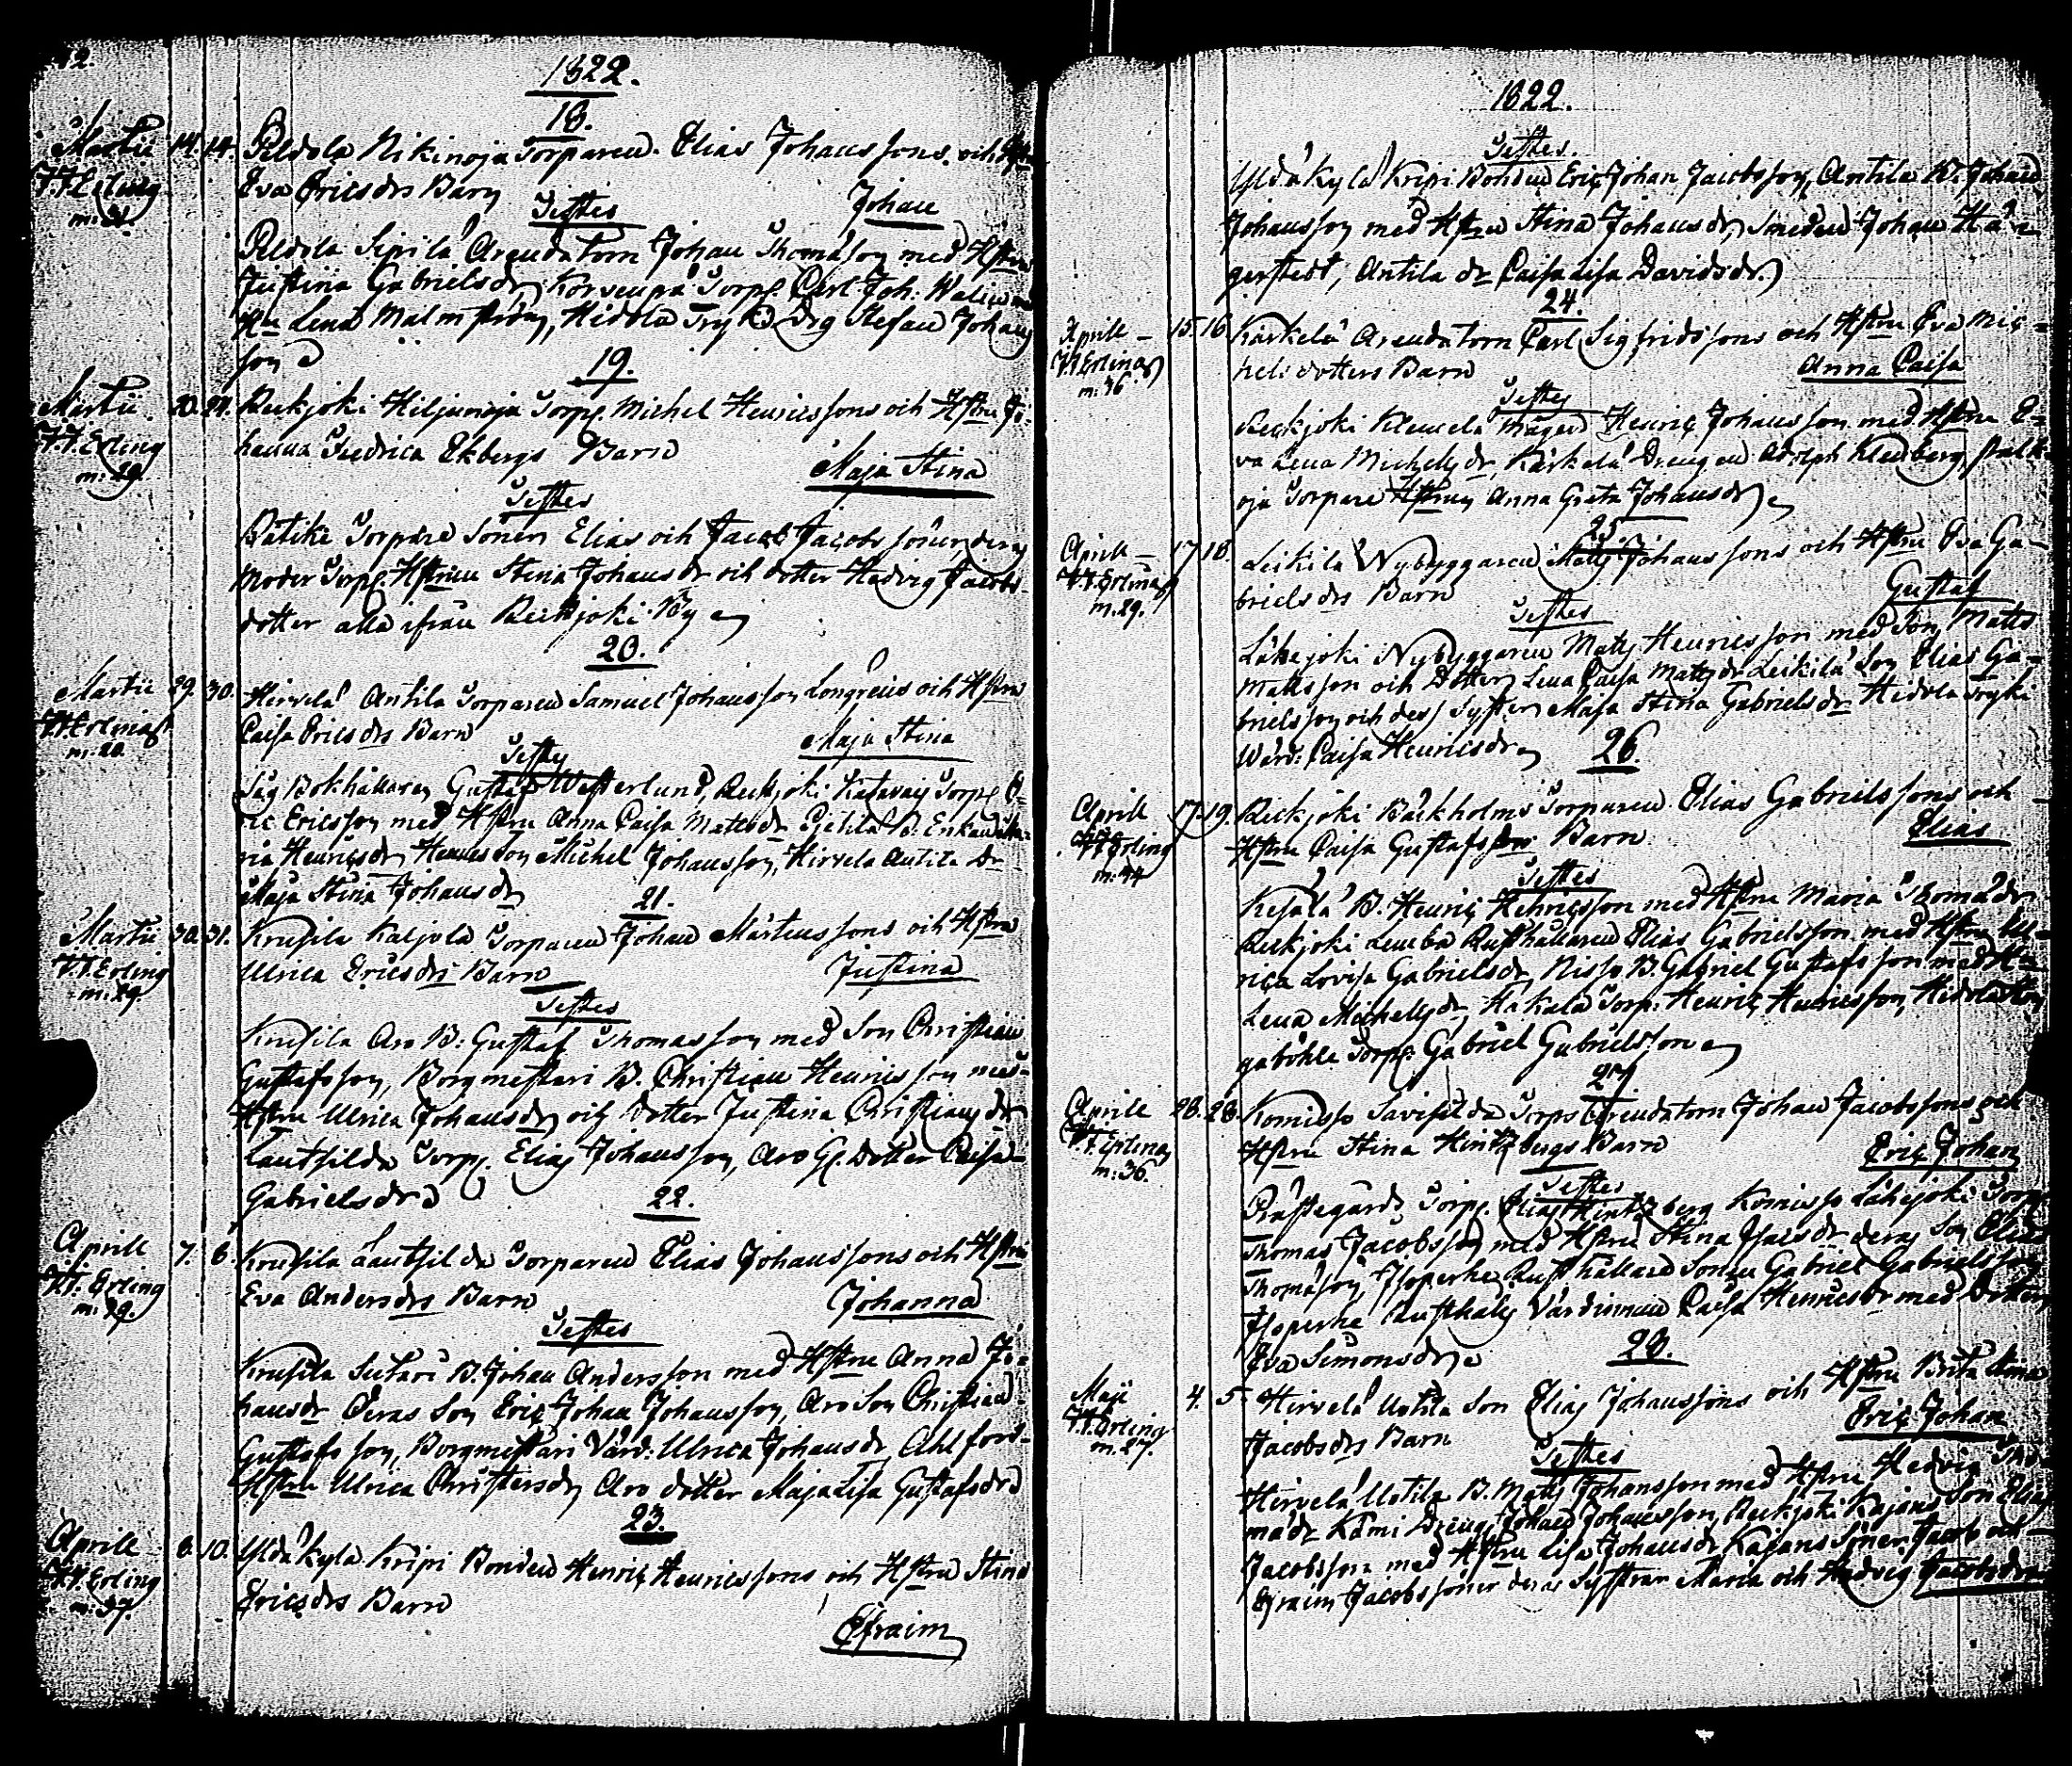 12.
1822.
18.
Martii 14. 14. Peldola Nikinoja Torparen Elias Johanssons och Hstru
F.F. Erling Eva Ericsdrs Barn
Johan
m: 31.
Testes
Peldola Sipilä Arendatorn Johan Thomasson med Hstru
Justina Gabrielsdr, Korvenpä Torp. Carl Joh:
Hu Lena Malmström, Hidola Drg Stefan Johans
son
19.
Martii 20. 24. Reckjoki Hiljanoja Torp. Michel Henricssons och Hstru Jo-
F.F. Erling hanna Fredrica Ekbergs Barn
m: 29. Maja Stina
Testes
Rätike Torpare Söner Elias och Jacob Jacobs söner, deras
Moder Torp. Hstrun Stina Johansdr och dotter Hedvig Jacobs-
dotter alla ifrån Reckjoki By
20.
Martii 29. 30. Hirvelä Antila Torparen Samuel Johansson Longreus och Hstru
F.F. Erling Caisa Ericsdrs Barn
Maja Stina
m: 20.
Testes
Såg Bokhållaren Gustaf Westerlund, Reckjoki Torp. E-
ric Ericsson med Hstru Anna Caisa Mattsdr B. Enkan Ma-
ria Henricsdr, Hennes Son Michel Johansson, Hirvelä Antila Dr
Maja Stina Johansdr
21.
Martii 30. 31. Krusila Kaljola Torparen Johan Mårtenssons och Hstru
F.F. Erling Ulrica Ericsdrs Barn
Justina
m: 29.
Testes
Krusila Aro B: Gustaf Thomasson med Son Christian
Gustafsson, Borgmestari B. Christian Henricsson med
Hstru Ulrica Johansdr och Dotter Justina Christiansdr
Lautsilda Torp. Elias Johansson, Aro Gl. Dotter Caisa
Gabrielsdr
22.
Aprill 7. 8. Krusila Lautsilda Torparen Elias Johanssons och Hstru
F.F. Erling Eva Andersdrs Barn
Johanna
m: 29.
Testes
Krusila Sutari B. Johan Andersson med Hstru Anna Jo-
hansdr Deras Son Eric Johan Johansson, Aro Son Christian
Gustafsson, Borgmestari Värd: Ulrica Johansdr, Ahlfors
Hstru Ulrica Christersdr, Aro dotter Maja Lisa Gustafsdr
23.
Aprill 8. 10. Yldäkylä Kripi Bonden Henric Henricssons och Hstru Stina
F.F. Erling Ericsdrs Barn
m: 37.
Efraim
1822.
Testes.
Yldäkylä Kripi Bonden Eric Johan Jacobsson, Antila B. Johan
Johansson med Hstru Stina Johansdr, Smeden Johan Hä-
gerstedt, Antila dr Caisa Lisa Davidsdr.
24.
Aprill 15. 16. Kärkelä Arendatorn Carl Sigfridssons och Hstru Eva Mic-
F.F. Erling helsdotters Barn
Anna Caisa
m: 36.
Testes
Reckjoki Klemela Mågen Henric Johansson med Hstru E-
va Lena Michelsdr, Kärkelä Drengen Adolph Kleberg,
oja Torpare Hstrun Anna Greta Johansdr
25
Aprill 17. 18. Leikilä Nybyggaren Matts Johanssons och Hstru Eva Ga-
F.F. Erling brielsdrs Barn
Gustaf
m. 29.
Testes
Lähejoki Nybyggaren Matts Henricsson med Son Matts
Mattsson och Dotter Lena Caisa Mattsdr Leikilä Son Elias Ga-
brielsson och dess Syster Maja Stina Gabrielsdr Hidola
Värd: Caisa Henricsdr
26.
Aprill 17. 19. Reckjoki Bäckholms Torparen Elias Gabrielssons och
F.F. Erling Hstru Caisa Gustafsdrs Barn
Elias
m. 44
Testes
Kesälä B. Henric Henricsson med Hstru Maria Thomadr
Reckjoki Lemba Rusthållaren Elias Gabrielsson med Hstru Ul-
rica Lovisa Gabrielsdr, Nisso B. Gabriel Gustafsson med Hu
Lena Michelsdr, Hakala Torp. Henric Henricsson, Hidola
gaböhle Torp. Gabriel Gabrielsson
27
Aprill 28. 28. Komisso Savisilda Torps Arendatorn Johan Jacobssons och
F.F. Erling Hstru Stina Hintzbergs Barn
Eric Johan
m: 36.
Testes
Prästegårds Torp. Elias Hintzberg Komisso Lähejoki Torp.
Thomas Jacobsson med Hstru Stina Isacsdr deras Son Elias
Thomasson, Isoperhe Rusthållare Sonen Gabriel Gabrielsson
Isoperhe Rusthålls Värdinnan Caisa Henricsdr med Dotter
Eva Simonsdr
28.
Maji 4. 5. Hirvelä Uotila Son Elias Johanssons och Hstru Brita Stina
F.F. Erling Jacobsdrs Barn
Eric Johan
m. 27.
Testes
Hirvelä Uotila B. Matts Johansson med Hstru Hedvig Tho-
madr Kämi Dreng Johan Johansson, Reckjoki Kajans Son Elias
Jacobsson med Hstru Lisa Johansdr, Kajans Söner Jacob och
Efraim Jacobssöner deras Systrar Maria och Hedvig Jacobsdr